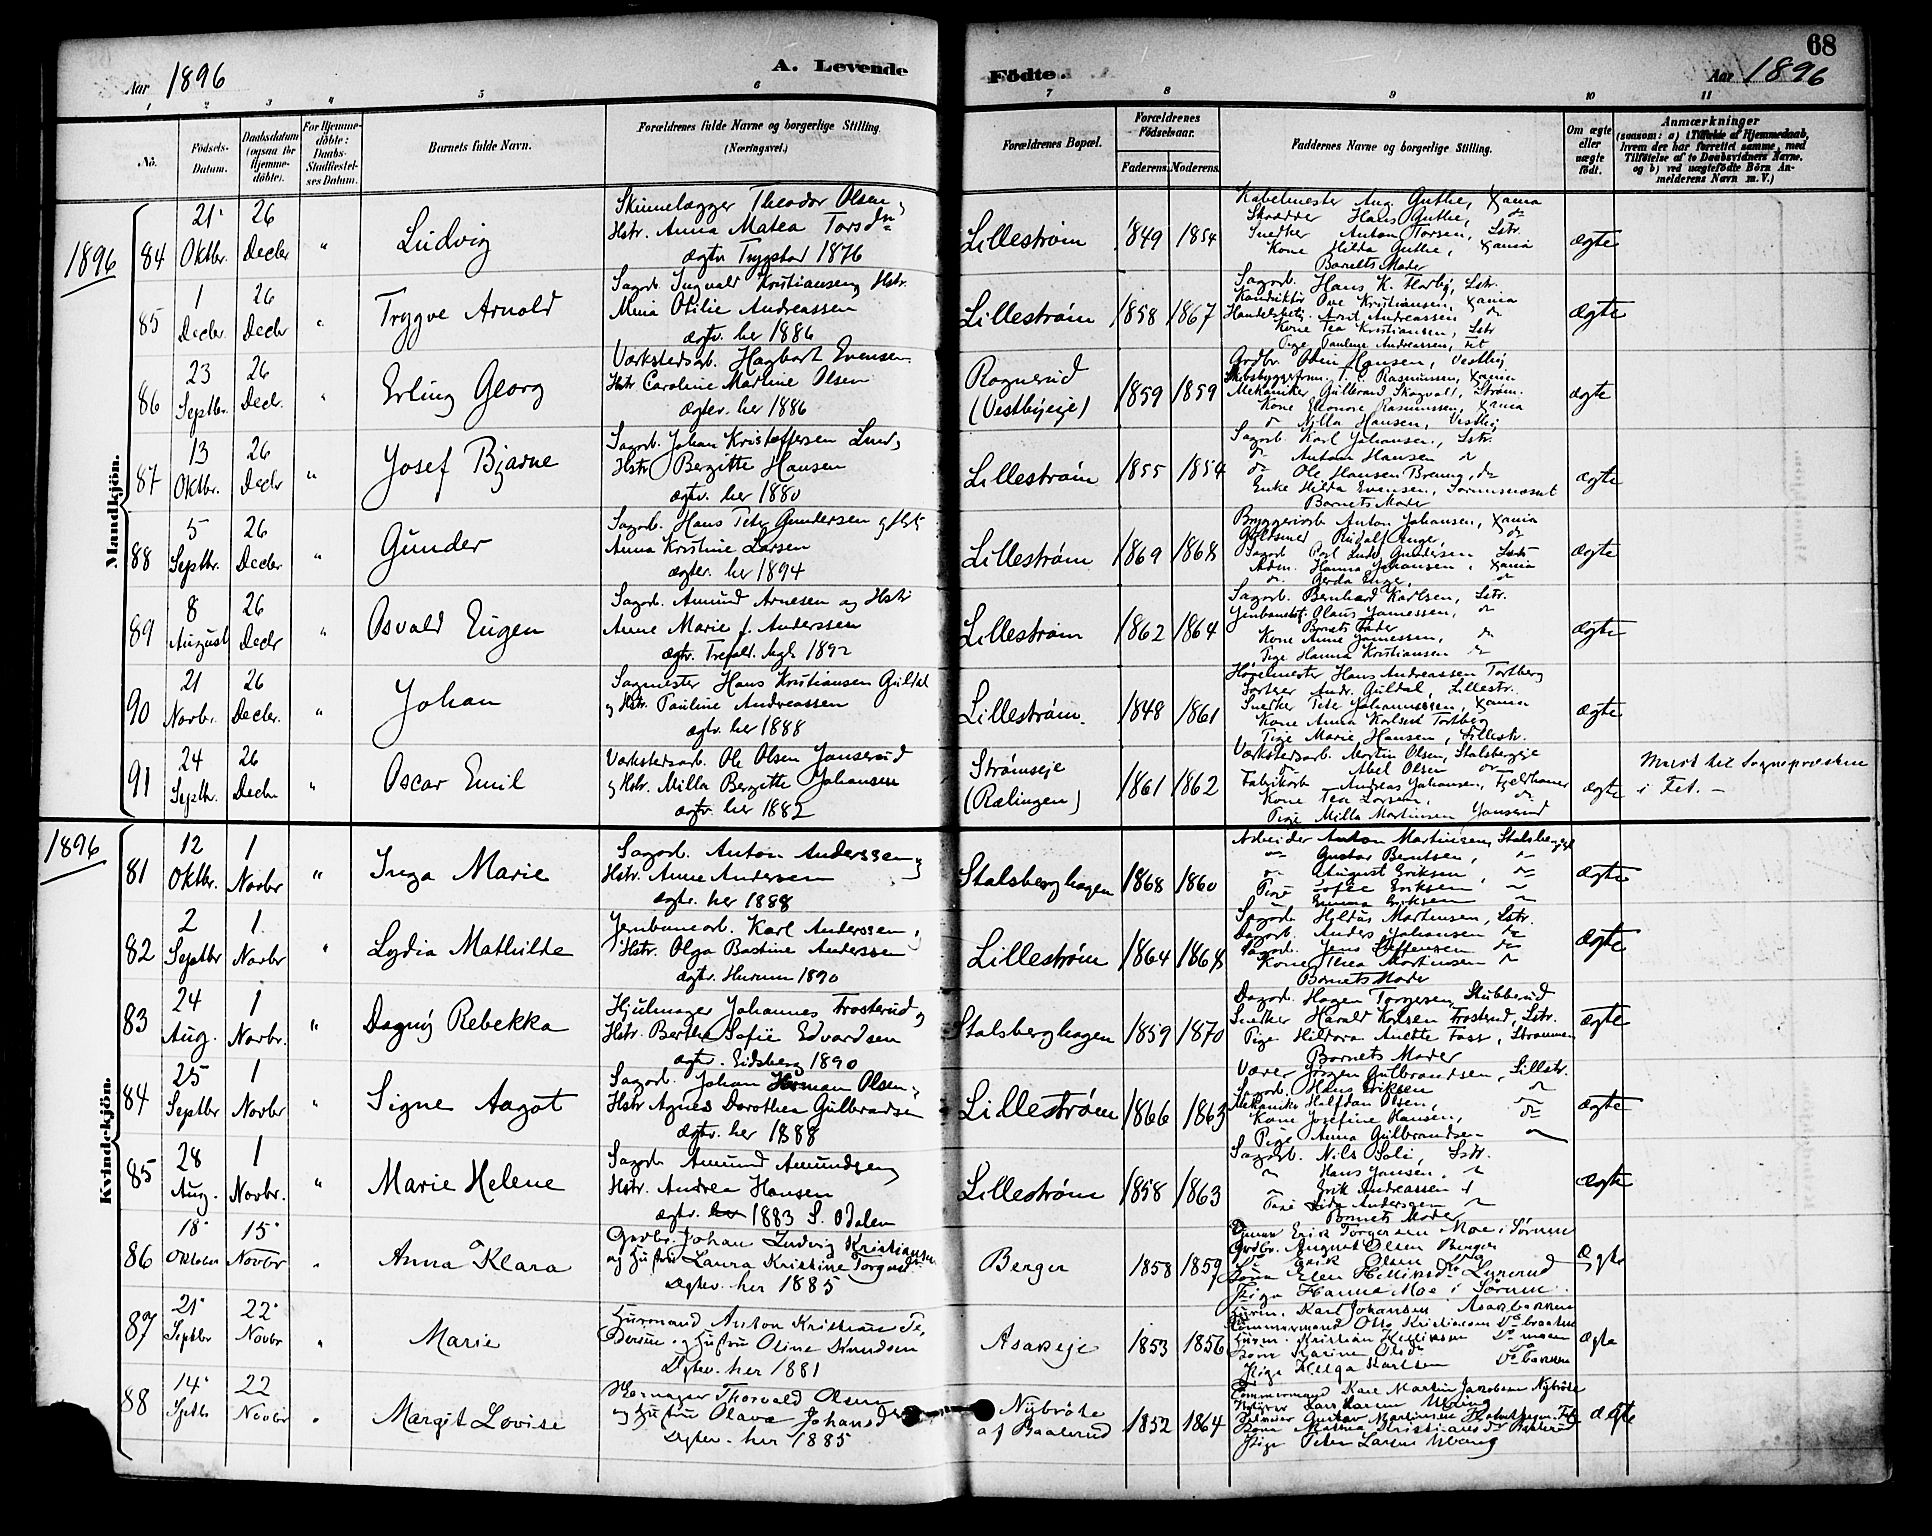 68
Aar 1896
A. Levende Födte.
Aar 1896
1 2 3 4 5 6 7 8 9 10 11
No.
Födsels-Datum.
Daabsdatum (ogsaa for Hjemme-döbte).
For Hjemme-döbte: Daabs-Stadfæstel-ses Datum.
Barnets fulde Navn.
Forældrenes fulde Navne og borgerlige Stilling.
(Næringsvei.)
Forældrenes Bopæl.
Forældrenes Födselsaar.
Faderens. Moderens.
Faddernes Navne og borgerlige Stilling.
Om ægte eller uægte födt.
Anmærkninger
(saasom: a) i Tilfælde af Hjemmedaab, hvem der har forrettet samme, med Tilföielse af to Daabsvidners Navne. og b) ved uægtefödte Börn Anmelderens Navn m. V.)
Mandkjön.
1896
84
21 Oktbr.
26 Decbr
"
Ludvig
Skinnelægger Theodor Olsen,
Hstr. Anna Matea Torsd
ægtv. Trygstad 1876
Lillestrøm
1849 1854
Kabelmester Aug. Guthe, Xania
Skrædder Hans Guthe, do
Snedker Anton Torsen, Lstr.
Kone Hilda Guthe, Xania
Barnets Moder
ægte
85
1 Decbr.
26 Decbr
"
Trygve Arnold
Sagarb. Ingvald Kristiansen, Hstr.
Mina Otilie Andreassen
ægtv. her 1886
Lillestrøm
1858 1867
Sagarb. Hans K. , Lstr.
Konduktør Ove Kristiansen, Xania
Handelsbetj. Arnt Andreassen do
Kone Tea Kristiansen, Lstr
Pige Pauline Andreassen, Fet
ægte
86
23 Septbr.
26 Decbr.
"
Erling Georg
Værkstedsarb. Hagbart Evensen
Hstr Caroline Martine Olsen
ægtev. her 1886
Rognerud
(Vestbyeje)
1859 1859
Grdbr. Odin Hansen, Vestby,
Skibsbyggerform. C. Rasmussen, Xania
Mekaniker Gulbrand Skogvold, Strøm.
Kone Elenore Rasmussen, Xania
do Nilla Hansen, Vestby
ægte
87
13 Oktbr.
26 Decbr
"
Josef Bjarne
Sagarb. Johan Kristoffersen Lund,
Hstr. Bergitte Hansen
ægtv. her 1880
Lillestrøm
1855 1854
Sagarb. Karl Johansen, Lstr.
do Anton Hansen do
do Ole Hansen Breung, do
Enke Hilda Evensen,
Barnets Moder
ægte
88
5 Septbr.
26 Decbr
"
Gunder
Sagarb. Hans Peter Gundersen og Hstr
Anna Kristine Larsen
ægtev. her 1894
Lillestrøm
1869 1868
Bryggeriarb Anton Johansen, Xania
Guldsmed Rudolf Enge, do
Sagarb. Gundersen Lstr
Hanna Johansen, Xania
do Gerda Enge, do
ægte
89
8 August
26 Decbr
"
Osvald Eugen
Sagarb. Amund Arnesen og Hstr
Anne Marie f. Anderssen
ægtv. Trefold. Mgh. 1892
Lillestrøm
1862 1864
Sagarb. Bernhard Karlsen, Lstr.
Jernbanebetj. Olaus Jamessen, do
Barnets Fader
Kone Anne Jamessen, do
Pige Hanna Kristiansen do
ægte
90
21 Novbr.
26 Decbr.
"
Johan
Sagmester Hans Kristiansen Guldal
og Hstr. Pauline Andreassen
ægtv. her 1888
Lillestrøm.
1848 1861
Høvelmester Hans Andreassen Torlberg
Sorterer Andr. Guldal, Lillestr.
Snedker Peter Johannessen, Xania
Kone Anna Karlsen Torlberg
Pige Marie Hansen, Lillestr.
ægte
91
24 Septbr.
26 Decbr
"
Oscar Emil
Værkstedsarb. Ole Olsen Jonserud
og Hstr. Milla Bergitte Johansen
ægtv. her 1882
Strømseje
(Rælingen)
1861 1862
Værkstedsarb. Martin Olsen, Stalsbergeje
do Abel Olsen do
Fabrikarb Andreas Johansen, Fjeldhamer
Kone Tea Larsen, do
Pige Milla Martinsen Jonserud
ægte
Meldt til Sognepræsten
i Fet. –
Kvindekjön.
1896
81
12 Oktbr.
1 Novbr
"
Inga Marie
Sagarb. Anton Anderssen og
Hstr. Anne Andersen
ægtv. her 1888
Stalsberghagen
1868 1860
Arbeider Anton Martinsen, Stalsbergeje
do Gustav Berntsen, do
do August Eriksen, do
Pige Sofie Eriksen do
do Emma Eriksen do
ægte
82
2 Septbr
1 Novbr
"
Lydia Mathilde
Jernbanearb. Karl Anderssen,
Hstr. Olga Bastine Anderssen
ægtv. Hurum 1890
Lillestrøm
1864 1868
Sagarb. Hildus Martinsen, Lstr.
Dagarb. Anders Johansen do
Sagarb. Jens Steffensen do
Kone Thea Martinsen do
Barnets Moder
ægte
83
24 Aug.
1 Novbr.
"
Dagny Rebekka
Hjulmager Johannes Frosterud og
Hstr. Berthea Sofie Edvardsen
ægtv. Eidsberg 1890
Stalsberghagen
1859 1870
Dagarb. Hagen Torgersen, Stubberud
Snedker Harald Karlsen Frosterud, Lstr.
Pige Hildora Anette Foss, Strømmen
Barnets Moder
ægte
84
25 Septbr
1 Novbr
"
Signe Aagot
Sagarb. Johan Herman Olsen,
Hstr Agnes Dorothea Gulbrandsen
ægtv. her 1888
Lillestrøm
1866 1863
Væver Jørgen Gulbrandsen, Lillestr.
Sagarb. Hans Eriksen do
Mekaniker Halfdan Olsen, do
Kone Josefine Hansen, do
Pige Anna Gulbrandsen do
ægte
85
28 Aug.
1 Novbr.
"
Marie Helene
Sagarb. Amund Amundsen,
Hstr. Andrea Hansen
ægtv. her 1883 S. Odalen
Lillestrøm
1858 1863
Sagarb. Nils Soli, Lstr.
do Hans Jansen, do
do Erik Andreassen do
Pige Lida Anderssen do
Barnets Moder
ægte
86
18 Oktober
15 Novbr
"
Anna Klara
Grdbr. Johan Ludvig Kristiansen
og Hustru Laura Kristine Torgersd
Ægtev. her 1885
Berger
1858 1859
Erik Torgersen Moe i Sørum
Grdbr. August Olsen Berger
Do Erik Olsen Do
Kona Elen Helliksd Lynerud
Pige Hanna Moe i Sørum
Ægte
87
21 Septbr
22 Novbr
"
Marie
Husmand Anton Kristian Pe-
dersen og Hustru Oline Knudsen
Ægtev. her 1881
Asakeje
1853 1856
Husm. Karl Johansen Asakbakken
Tømmermand Otto Kristiansen Do braaten
Husm. Kristian Hellicksen Do moen
Kone Karine Olsd Do
Pige Helga Karlsen Do bakken
Ægte
88
14 Septbr
22 Novbr
"
Margit Lovise
Skomager Thorvald Olsen
og Hustru Olava Johansd
Ægtev. her 1885
Nybrøte
af Baalerud
1852 1864
Tømmermand Karl Martin Jacobsen Nybrøte
Lars Larsen Ubeng
Arbeider Gustav Martinsen Fet
Kona Mathea Kristiansd Do Baalerud
Pige Petra Larsen Ubeng
ægte